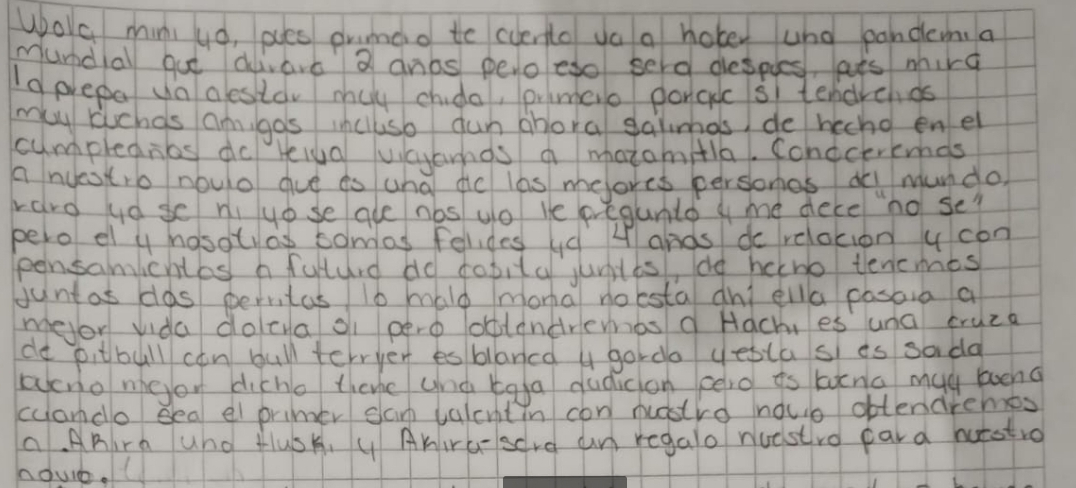 Wola mini yo, pues primero te cuento va a haber una pandemia
mundial que durara 2 años pero eso sera despues, pues mira
la prepa va a estar muy chida, primero porque si tendremos
muy buenas amigas incluso aun ahora salimos, de hecho en el
cumpleaños de viajamos a mazamitla. Conoceremos
a nuestro novio que es una de las mejores personas del mundo,
raro ya se ni yo se que nos vio le pregunto y me dece "no se"
pero el y nosotras somos felices ya 4 años de relacion y con
pensamientos a futuro de casita juntos, de hecho tenemos
juntos dos perritas, lo malo mona no esta ahi ella pasara a
mejor vida dolera si pero obtendremos a Hachi es una cruza
de pitbull con bull terryer es blanco y gordo y esta si es sorda
bueno mejor dicho tiene una baja audicion pero es buena muy buena
cuando sea el primer san valentin con nuestro novio obtendremos
a Akira una Huski y Akira sera un regalo nuestro para nuestro
novio.